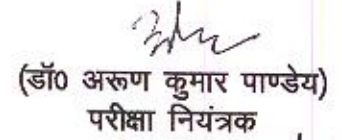 (डॉ0 अरूण कुमार पाण्डेय)
परीक्षा नियंत्रक